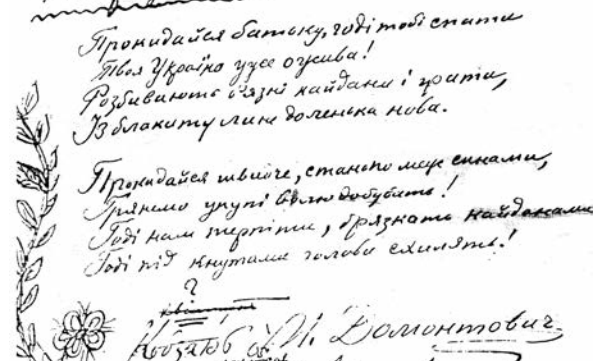 Прокидайся батьку, годі тобі спати
Твоя Україна уже ожива!
Розбивають в'язні кайдани і грати,
Із блакиту лине доленька нова.
Прокидайся швидче, стань по між синами,
Грянемо укупі волю добувать!
Годі нам терпіти, брязкать кайданами
Годі під кнутами голови схилять!
?
И. Домонтович